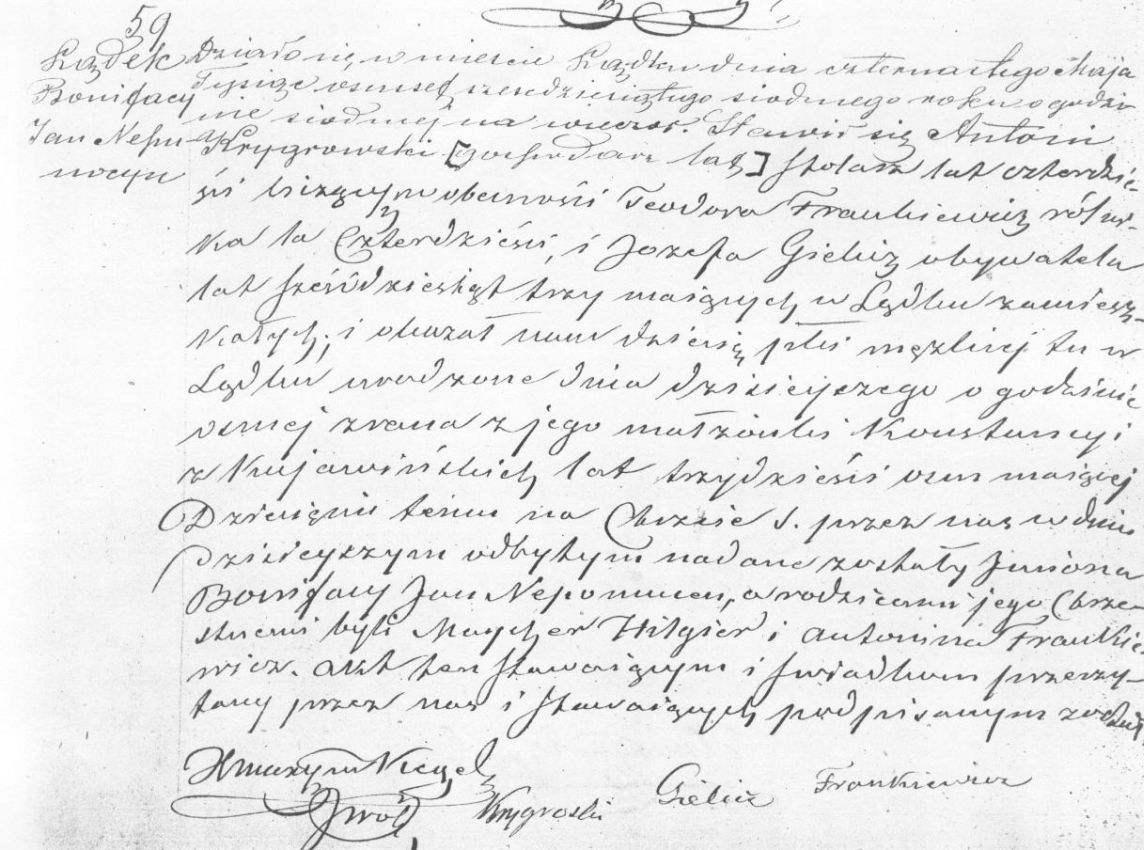 59
Lądek
Bonifacy
Jan Nepu-
mocyn
Działo się w mieście Lądku dnia czternastego Maja
Tysiąc osmset szescdziesiątego siodmego roku o godzi-
nie siodmej na wieczor. Stawił się Antoni
Krygrowski [gospodarz lat] Stolarz lat czterdzie-
ści liczący w obecności Teodora Frankiewicz rolni-
ka la Czterdzieści, i Jozefa Gielicz obywatela
lat sześćdziesiąt trzy maiących w Lądku zamiesz-
kałych, i okazał nam dziecię płci męzkiej tu w
Lądku urodzone dnia dzisieyszego o godzinie
osmej zrana z jego małżonki Konstancyi
z Kujawińskich lat trzydzieści osm maiącej
Dziecięciu temu na Chrzcie S. przez nas w dniu
Dzisieyszym odbytym nadane zostały Imiona
Bonifacy Jan Nepomucen, a rodzicami jego Chrze-
stnemi byli Maycher Hilgier i Antonina Frankie-
wicz. Akt ten stawaiącym i świadkom przeczy-
tany przez nas i stawaiących podpisanym został
Krygroski Gielicz Frankiewicz